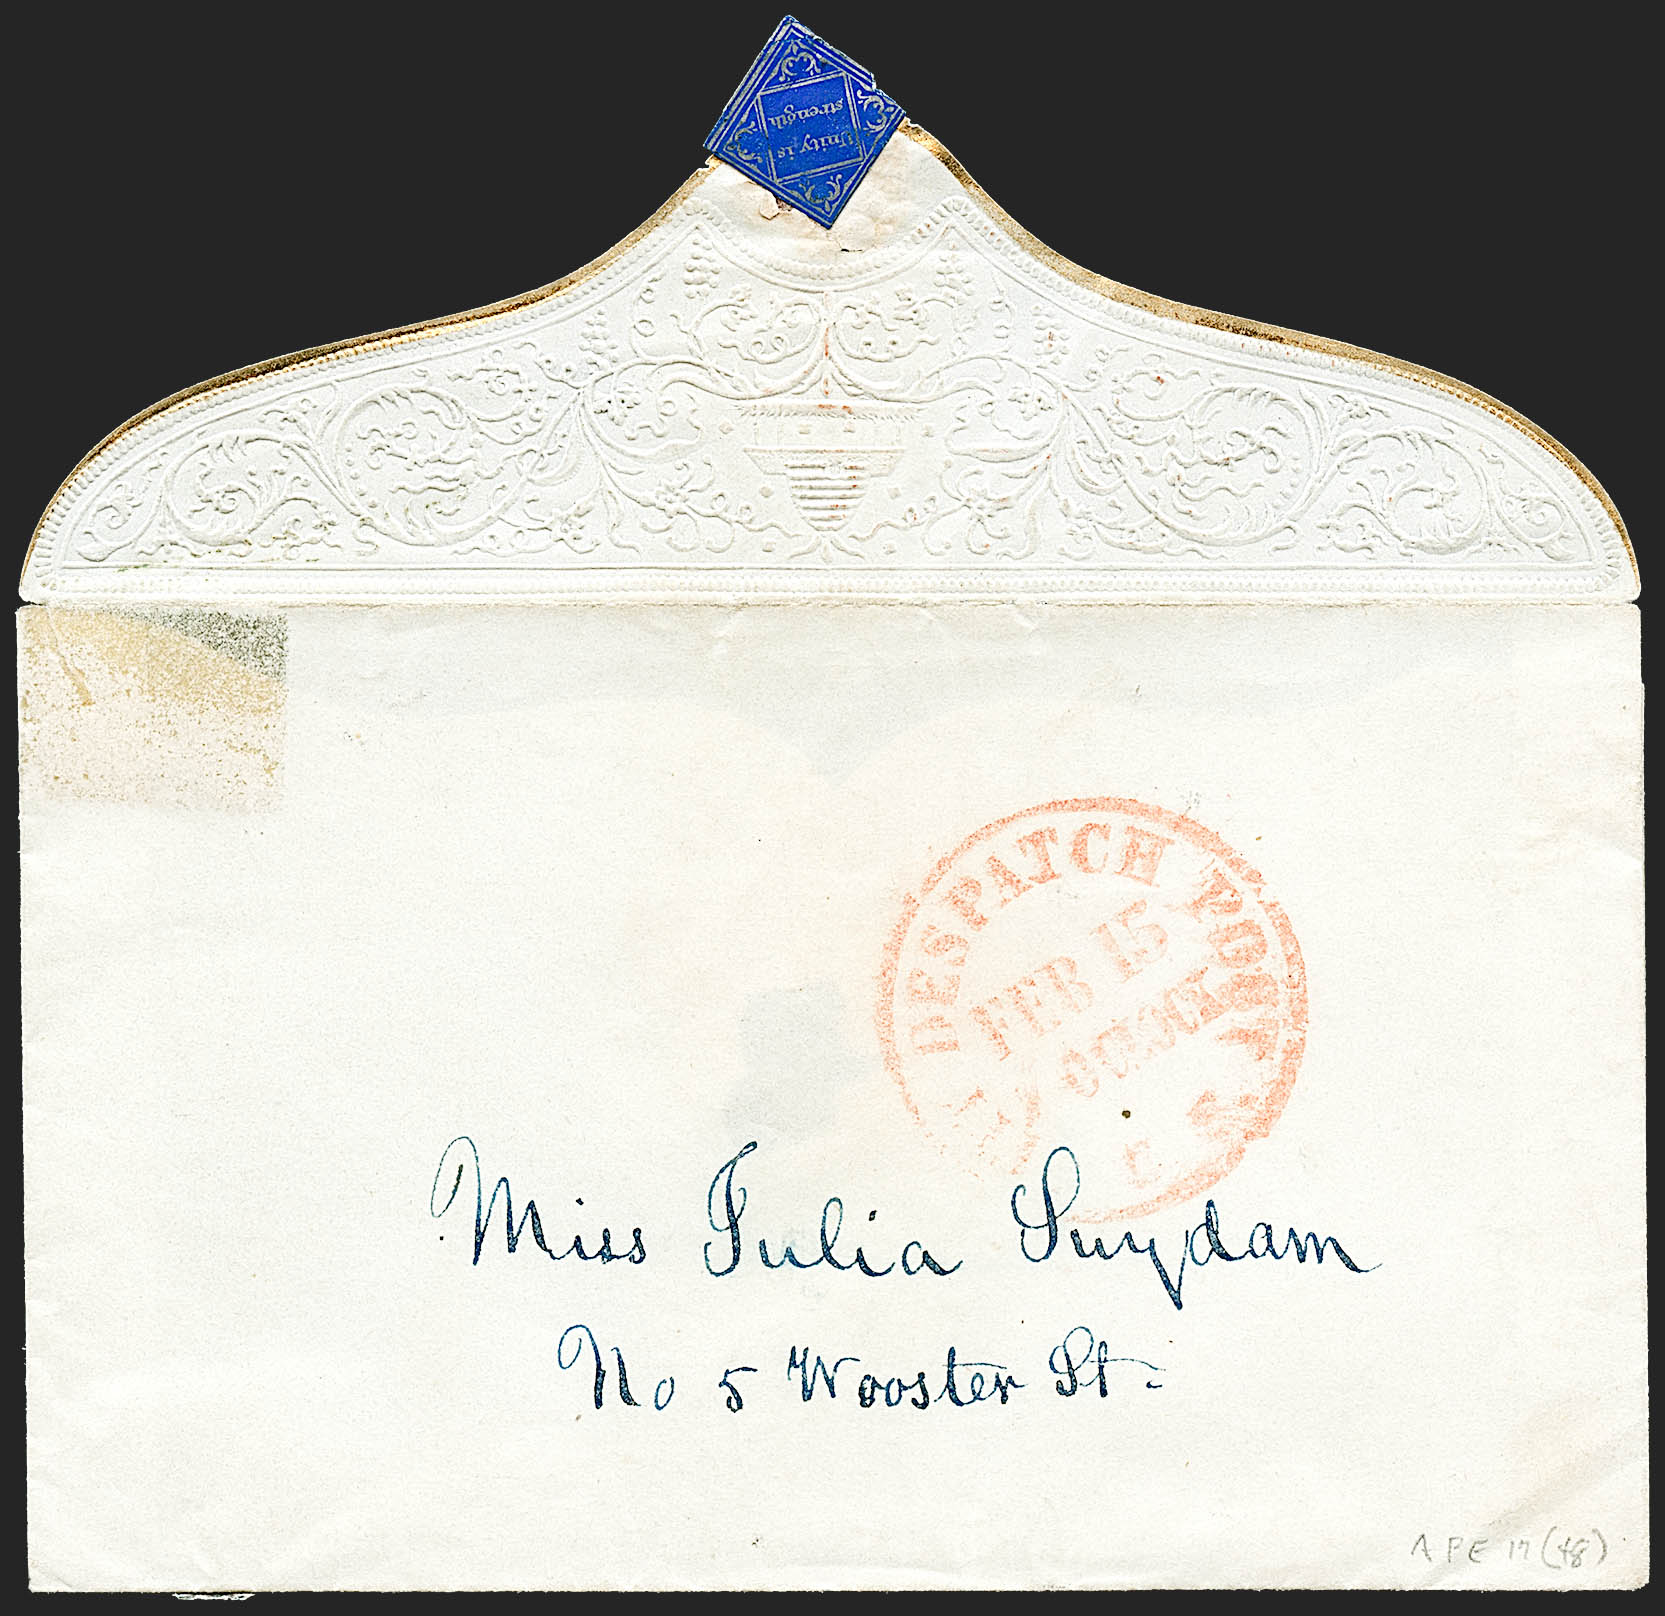 Unity is
strength
DESPATCH POST
FEB 15
O'CLOCK
Miss Julia Suydam
No 5 Wooster St.
A P E 17 (48)